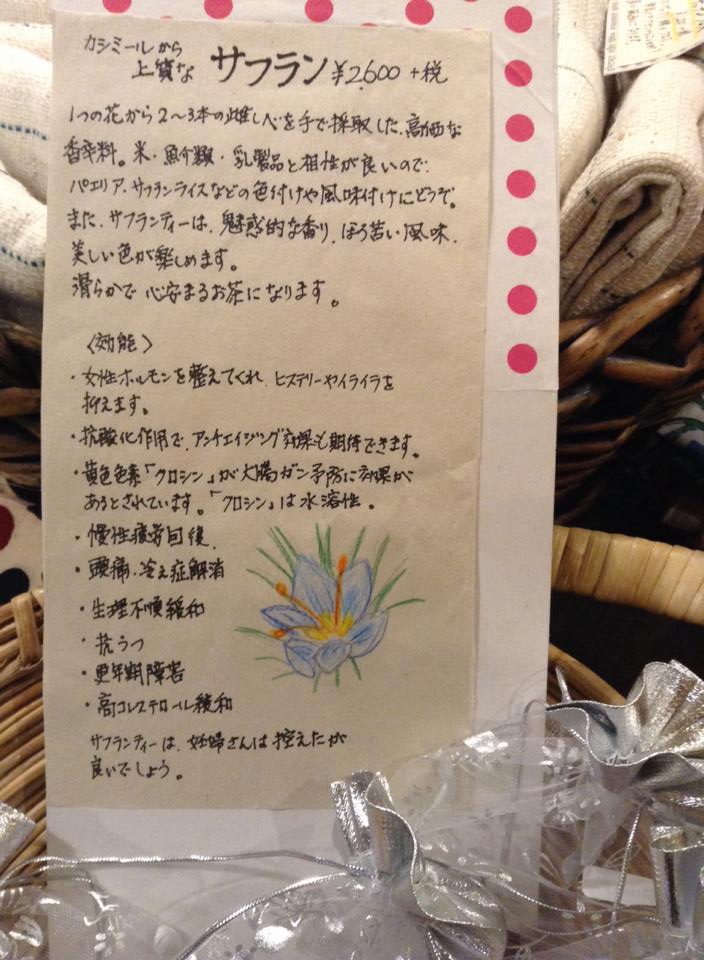 カシミールから
上質な サフラン ¥2,600 +税
1つの花から2〜3本の雌しべを手で採取した、高価な
香辛料。米・魚介類・乳製品と相性が良いので、
パエリア、サフランライスなどの色付けや風味付けにどうぞ。
また、サフランティーは、魅惑的な香り、ほろ苦い風味、
美しい色が楽しめます。
滑らかで心安まるお茶になります。
〈効能〉
・女性ホルモンを整えてくれ、ヒステリーやイライラを
抑えます。
・抗酸化作用で、アンチエイジング効果も期待できます。
・黄色色素「クロシン」が大腸ガン予防に効果が
あるとされています。「クロシン」は水溶性。
・慢性疲労回復、
・頭痛、冷え症解消
・生理不順緩和
・抗うつ
・更年期障害
・高コレステロール緩和
サフランティーは、妊婦さんは控えたが
良いでしょう。